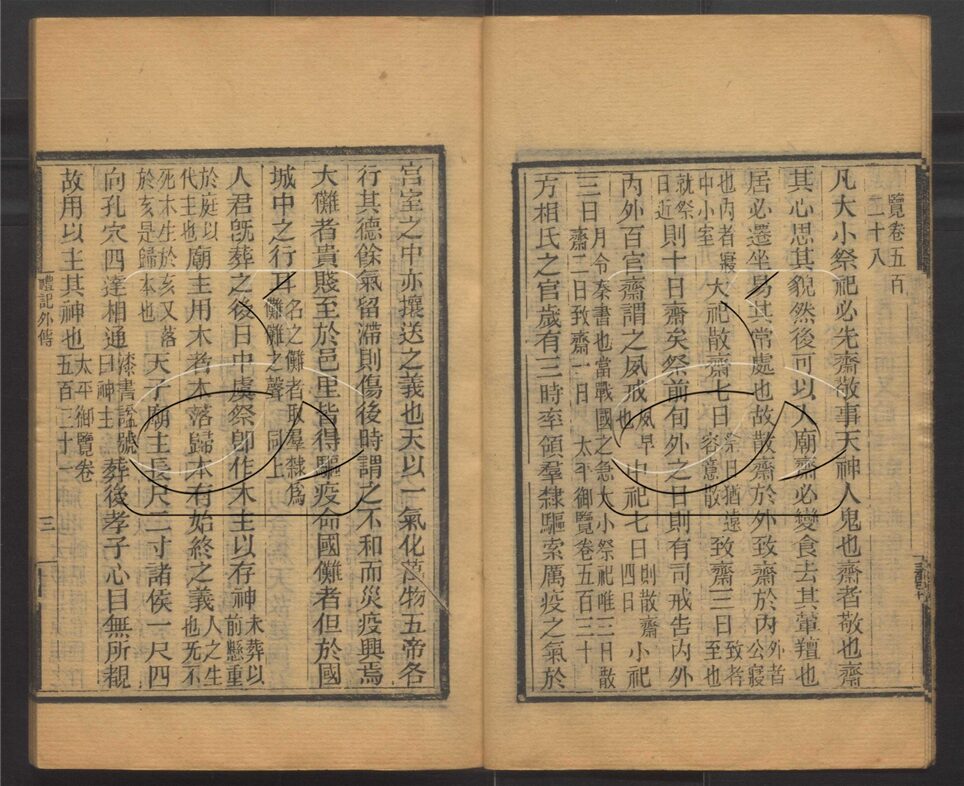 覽卷五百
二十八
凡大小祭祀必先齋敬事天神人鬼也齋者敬也齋
其心思其貌然後可以入廟齋必變食去其葷羶也
居必遷坐易其常處也故散齋於外致齋於內外者公寢
也內者寢中小室大祀散齋七日祭日猶遠容意散致齋三日致者至也
就祭日近則十日齋矣祭前旬外之日則有司戒告內外
內外百官齋謂之夙戒夙早也中祀七日則散齋四日小祀
三日月令秦書也當戰國之急大小祭祀唯三日散齋二日致齋一日太平御覽卷五百三十
方相氏之官歲有三時率領羣隸驅索厲疫之氣於
宮室之中亦攘送之義也天以一氣化萬物五帝各
行其德餘氣留滯則傷後時謂之不和而災疫興焉
大儺者貴賤至於邑里皆得驅疫命國儺者但於國
城中之行耳名之儺者取羣隸為儺儺之聲同上
人君旣葬之後日中虞祭卽作木主以存神未葬以前懸重
於庭以代主也廟主用木者木落歸本有始終之義人之生也旡不
死木生於亥又落於亥是歸本也天子廟主長尺二寸諸侯一尺四
向孔穴四達相通漆書謚號曰神主葬後孝子心目無所覩
故用以主其神也太平御覽卷五百三十一
禮記外傳
三